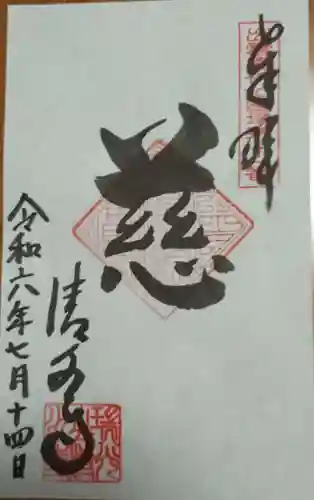 奉拝
慈
清水寺
令和六年七月十四日